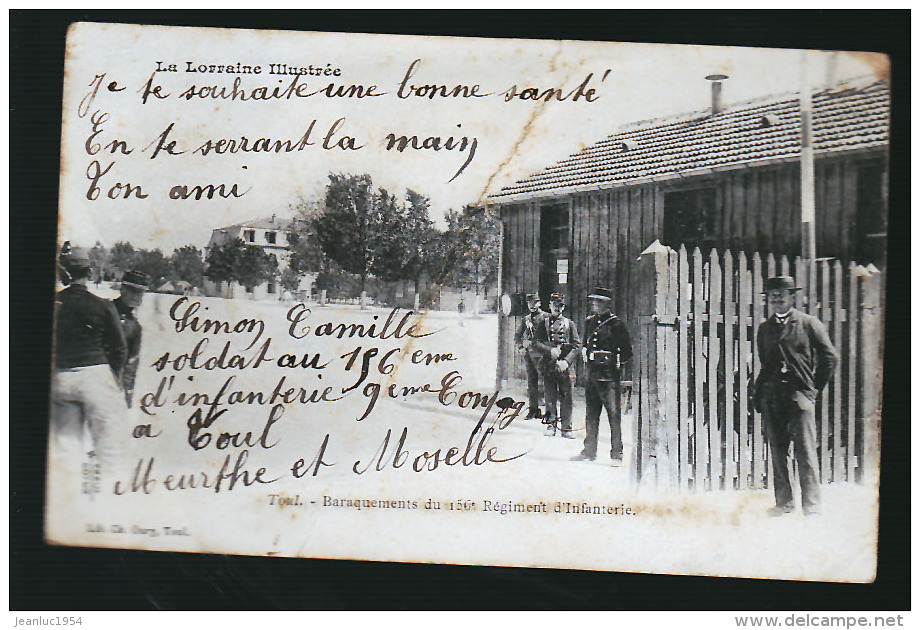 La Lorraine Illustrée
Je te souhaite une bonne santé
En te serrant la main
Ton ami
Simon Camille
soldat au 156 eme
d'infanterie 9eme Compagnie
a Toul
Meurthe et Moselle
Toul. - Baraquements du 156e Régiment d'Infanterie.
Lib. Ch. Toul.
jeanluc1954
www.delcampe.net